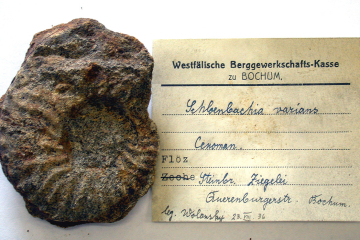 Westfälische Berggewerkschafts-Kasse
zu BOCHUM.
Schloenbachia varians
Cenoman.
Flöz
Zeche Steinbr. Ziegelei
Querenburgerstr. Bochum.
leg. Wolansky 28. 36